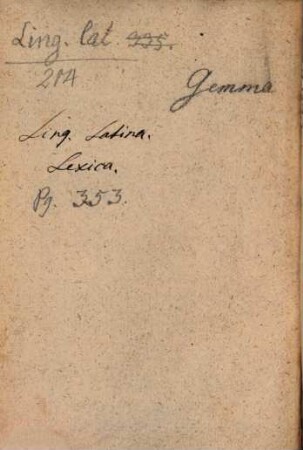 Ling. Lat. 935.
214
Gemma
Ling. Latina.
Lexica.
Pg. 353.